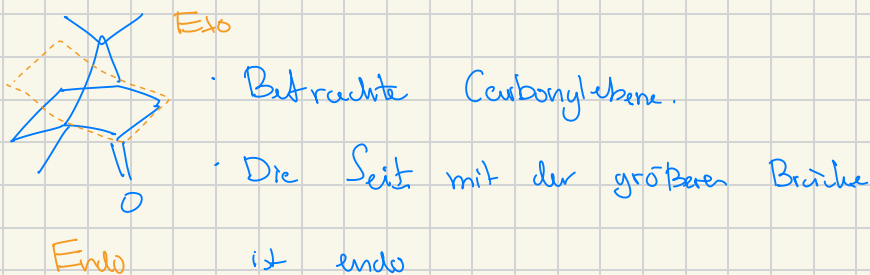 Exo
· Betrachte Carbonylebene.
· Die Seit mit der größeren Brücke
O
Endo ist endo